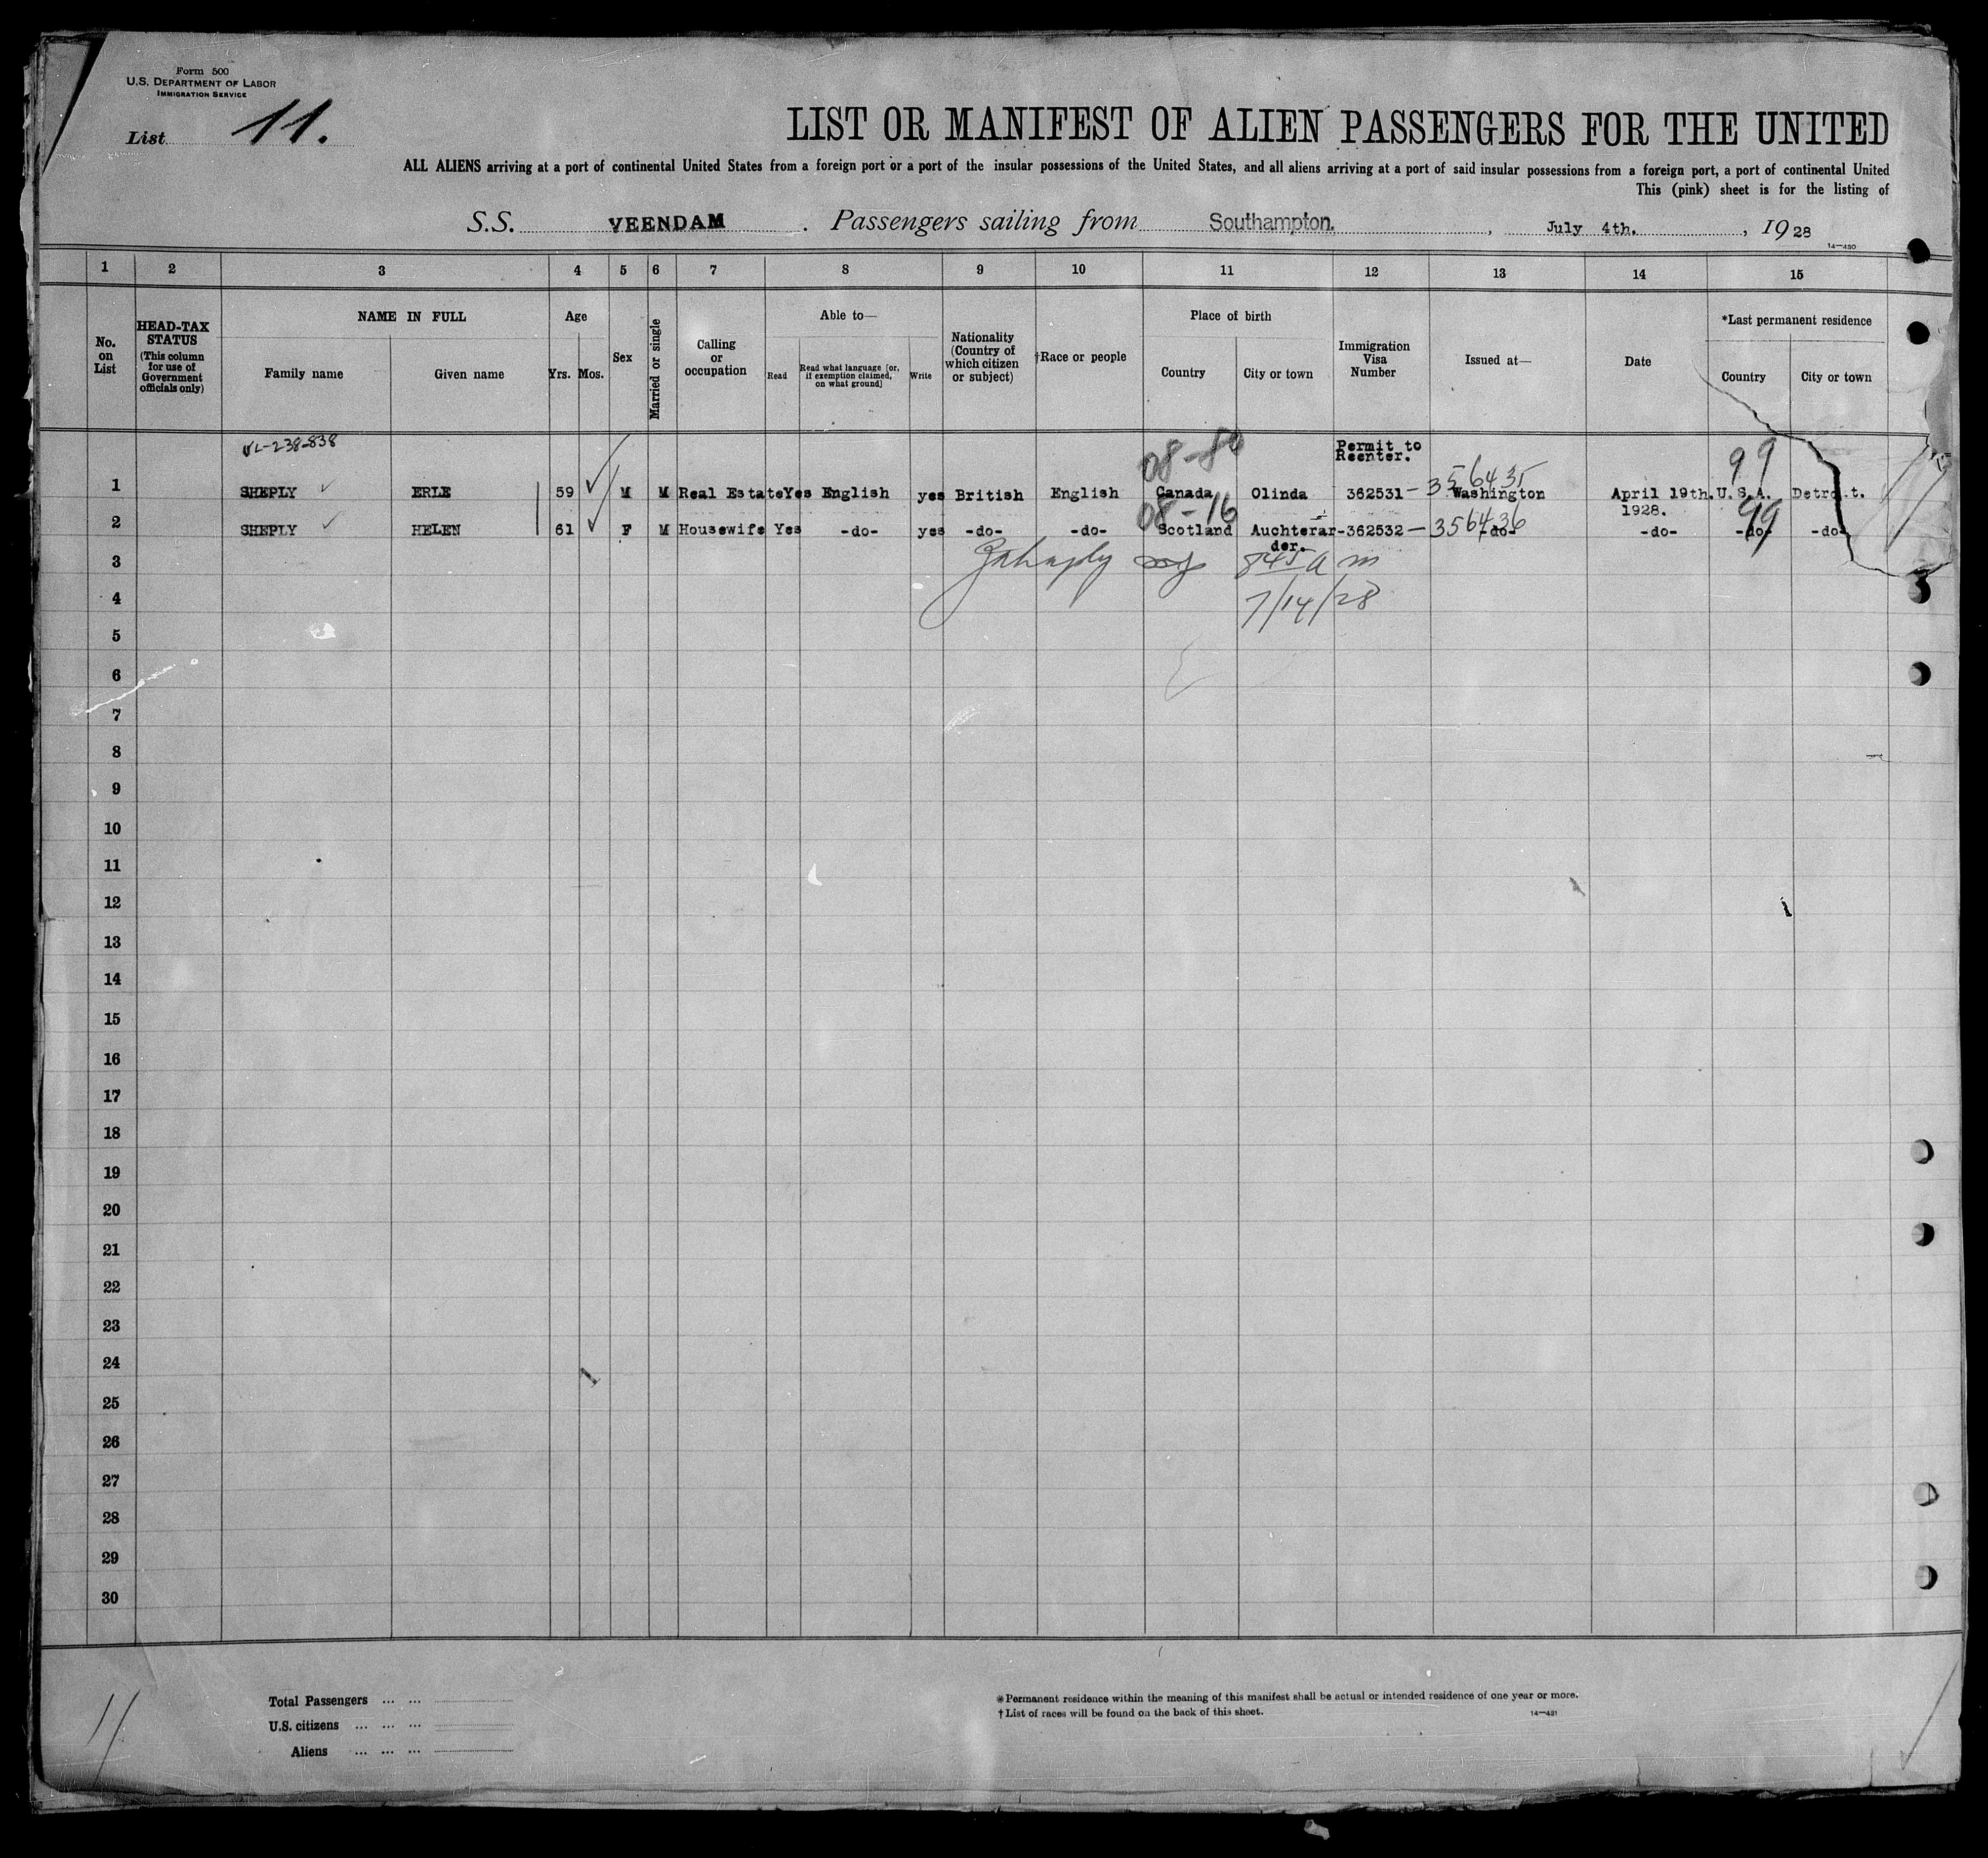 Form 500
U.S. DEPARTMENT OF LABOR
IMMIGRATION SERVICE
List 11.
LIST OR MANIFEST OF ALIEN PASSENGERS FOR THE UNITED
ALL ALIENS arriving at a port of continental United States from a foreign port or a port of the insular possessions of the United States, and all aliens arriving at a port of said insular possessions from a foreign port, a port of continental United
This (pink) sheet is for the listing of
S.S. VEENDAM. Passengers sailing from Southampton. , July 4th. , 1928
14—430
1 2 3 4 5 6 7 8 9 10 11 12 13 14 15
No. on List
HEAD-TAX STATUS (This column for use of Government officials only)
NAME IN FULL
Family name Given name
Age
Yrs. Mos.
Sex
Married or single
Calling or occupation
Able to—
Read Read what language [or, if exemption claimed, on what ground] Write
Nationality (Country of which citizen or subject)
†Race or people
Place of birth
Country City or town
Immigration Visa Number
Issued at—
Date
*Last permanent residence
Country City or town
238-838
08-80
Permit to Reenter.
99
356435
1 SHEPLY ERLE 59 M M Real Estate Yes English yes British English Canada Olinda 362531- Washington April 19th. 1928. U.S.A. Detroit.
08-16
356436
99
2 SHEPLY HELEN 61 F M Housewife Yes -do- yes -do- -do- Scotland Auchterar-der. 362532- -do- -do- -do- -do-
3
845 a m
4
7/14/28
5
6
7
8
9
10
11
12
13
14
15
16
17
18
19
20
21
22
23
24
25
26
27
28
29
30
11
Total Passengers ... ...
U.S. citizens ... ... ...
Aliens ... ... ...
*Permanent residence within the meaning of this manifest shall be actual or intended residence of one year or more.
†List of races will be found on the back of this sheet.
14—431